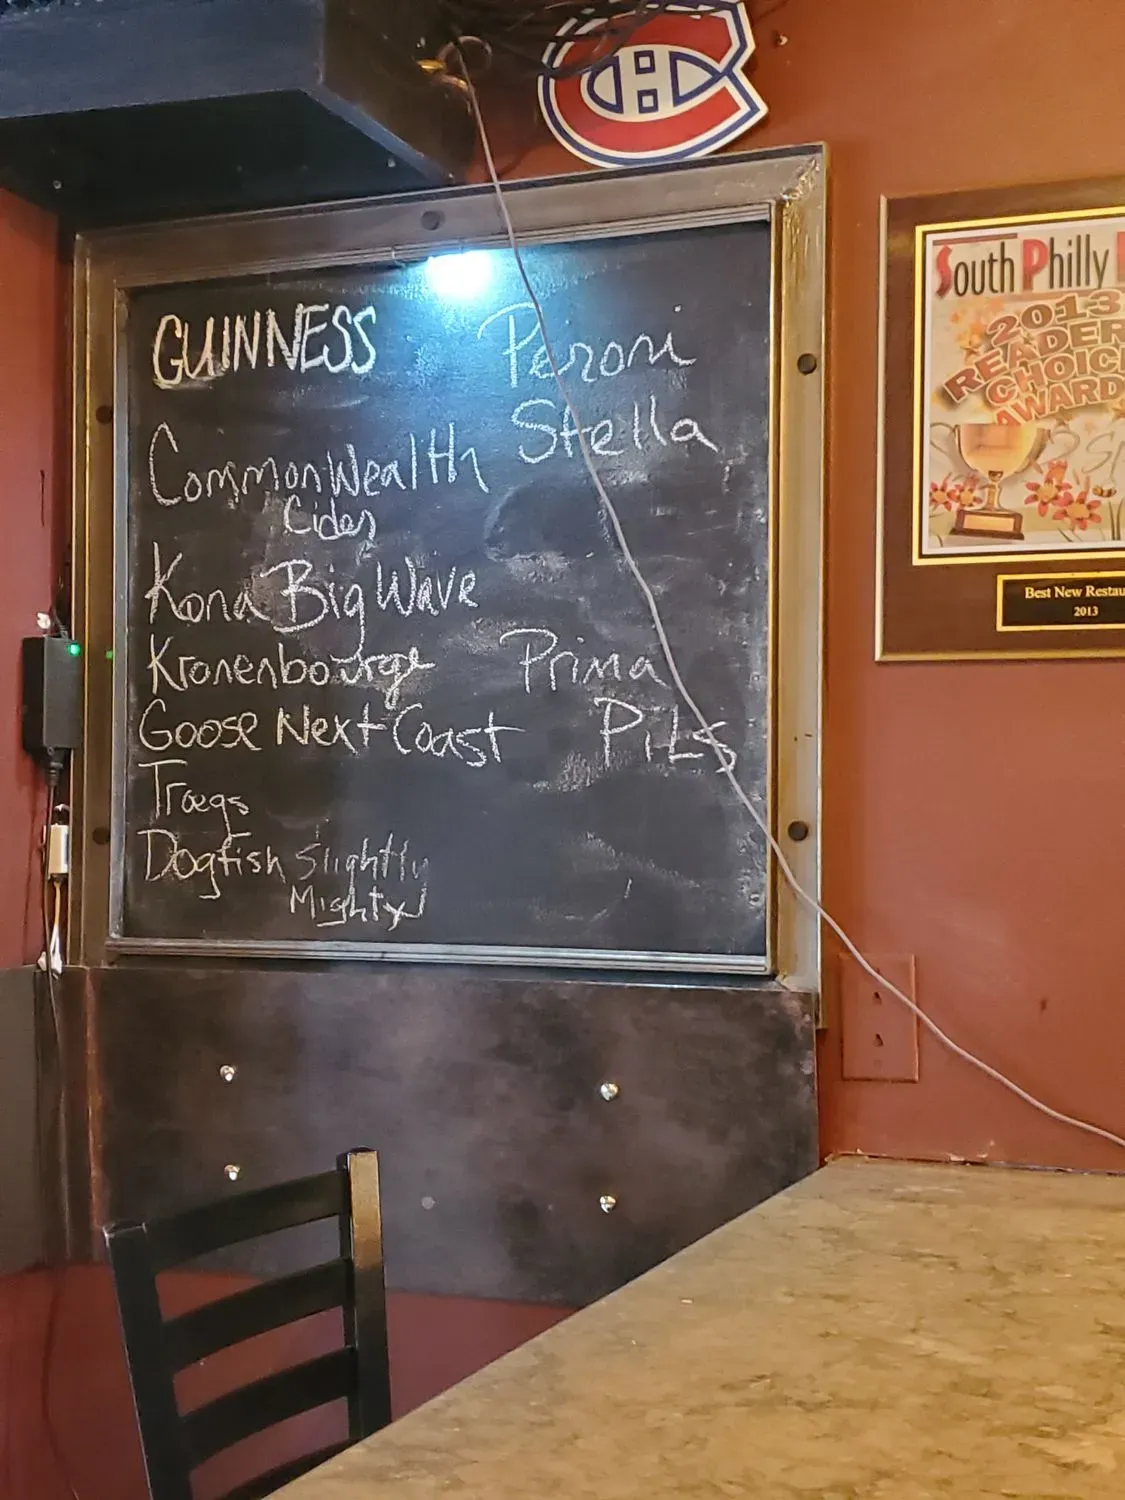 GUINNESS
CommonWealth
Cider
Kona Big Wave
Kronenbourge
Goose Next Coast
Troegs
Dogfish Slightly
Mighty
Peroni
Stella
Prima
PiLs
South Philly
2013
READER
CHOIC
AWARD
Best New Restau
2013